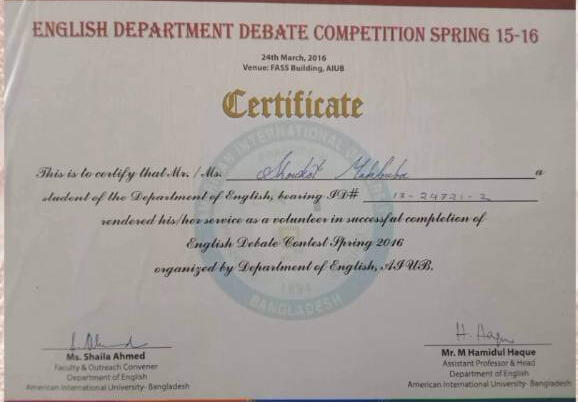 ENGLISH DEPARTMENT DEBATE COMPETITION SPRING 15-16
24th March, 2016
Venue: FASS Building, AIUB
Certificate
This is to certify that Mr. / Ms. a
student of the Department of English, bearing ID#
rendered his/her service as a volunteer in successful completion of
English Debate Contest Spring 2016
organized by Department of English, AIUB.
1994
BANGLADESH
Ms. Shaila Ahmed
Faculty & Outreach Convener
Department of English
American International University- Bangladesh
H. Haque
Mr. M Hamidul Haque
Assistant Professor & Head
Department of English
American International University- Bangladesh